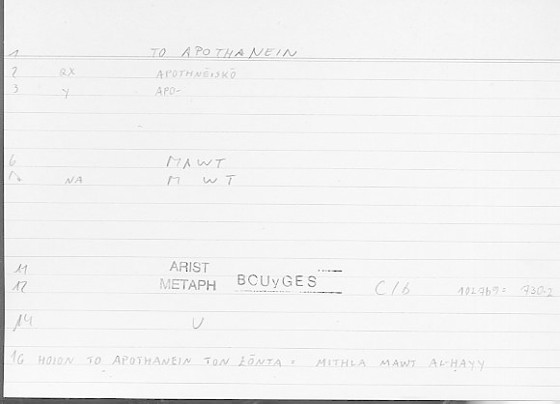 1 TO APOTHANEIN
2 QX APOTHNĒISKŌ
3 Y APO-
6 MAWT
NA M W T
11 ARIST
12 METAPH BCUyGES C/6 730-2
14 U
16 HOION TO APOTHANEIN TON ZŌNTA = MITHLA MAWT AL-ḤAYY